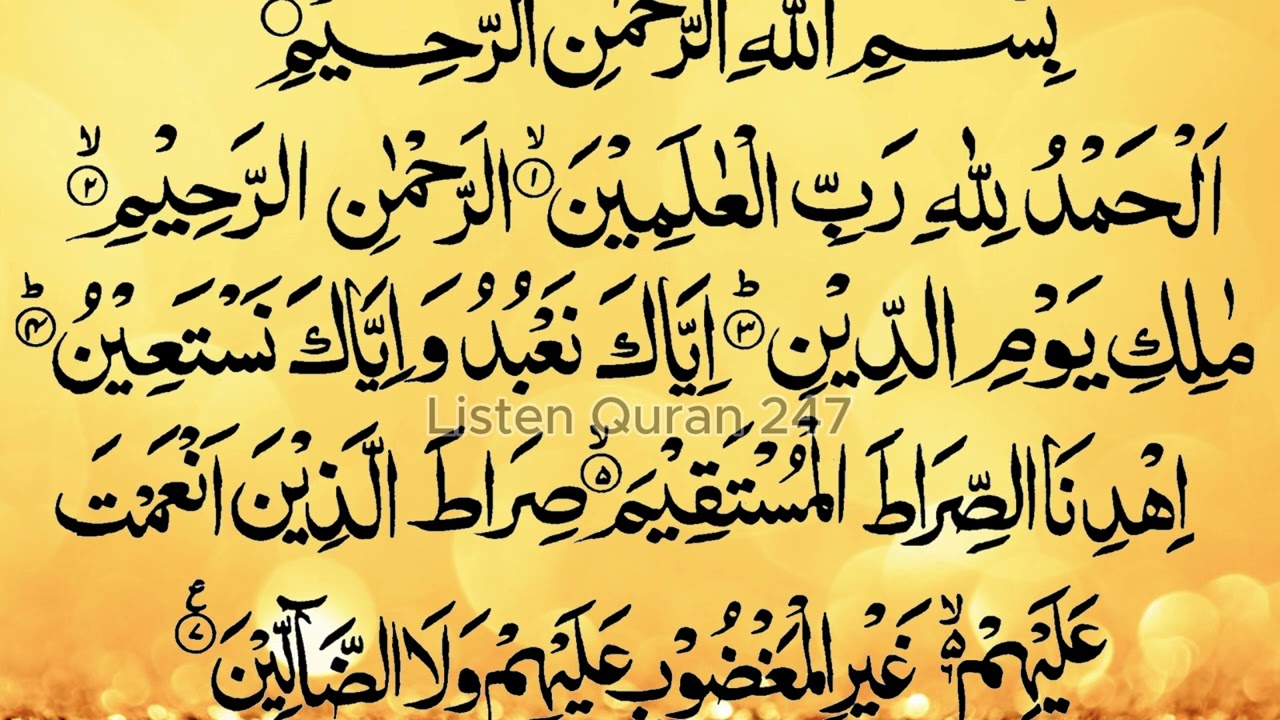 بِسْمِ اللّٰهِ الرَّحْمٰنِ الرَّحِيْمِ
اَلْحَمْدُ لِلّٰهِ رَبِّ الْعٰلَمِيْنَ ۙ﴿۱﴾ الرَّحْمٰنِ الرَّحِيْمِ ۙ﴿۲﴾
مٰلِكِ يَوْمِ الدِّيْنِ ؕ﴿۳﴾ اِيَّاكَ نَعْبُدُ وَ اِيَّاكَ نَسْتَعِيْنُ ؕ﴿۴﴾
Listen Quran 247
اِهْدِنَا الصِّرَاطَ الْمُسْتَقِيْمَ ۙ﴿۵﴾ صِرَاطَ الَّذِيْنَ اَنْعَمْتَ
عَلَيْهِمْ ۙ۬ۦ غَيْرِ الْمَغْضُوْبِ عَلَيْهِمْ وَلَا الضَّآلِّيْنَ ﴿۷﴾ ع